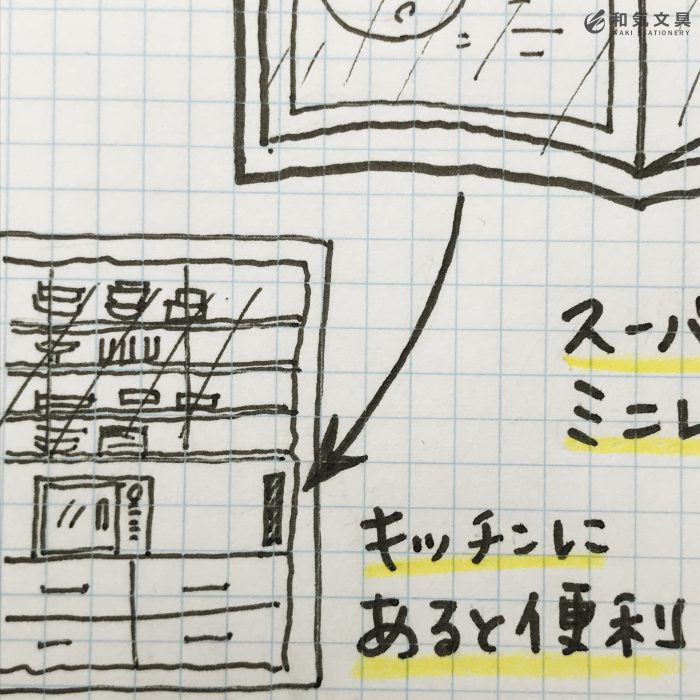 和気文具
WAKI STATIONERY
スーパ
ミニレ
キッチンに
あると便利